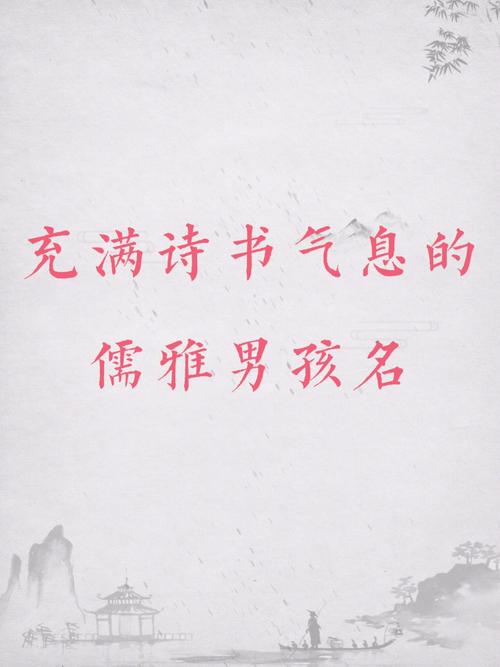 充满诗书气息的
儒雅男孩名